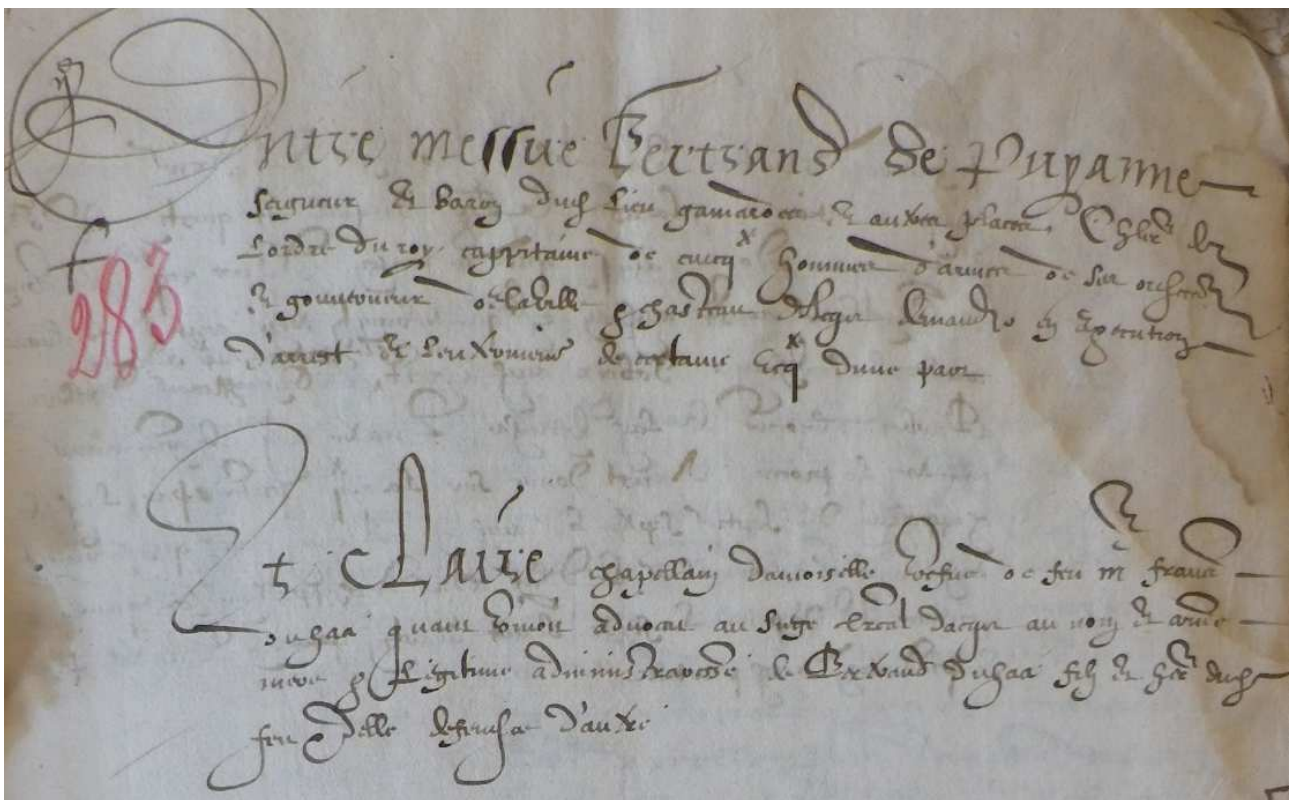 Entre messire Bertrand de Puyanne
seigneur et baron dud lieu gamarde et autres places Chlr de
Lordre du roy cappitaine de cinq hommes d'armes de ses
et gouverneur de la ville et chasteau demandr en execution
D'arrest et de certaine d'une part
283
Et Claire chapellain damoiselle vefve de feu me
duhaa quant vivoit advocat au siege dacqs au nom et comme
mere et Legitime administraresse de Bertrand duhaa filz et her dud
feu et elle defenss d'autre